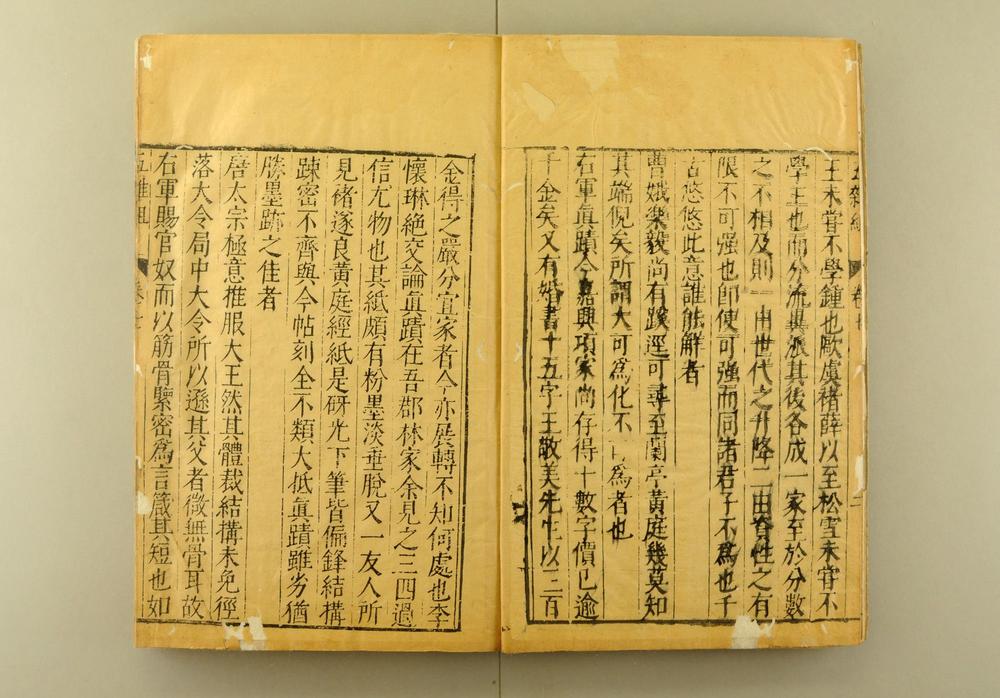 五雜組 卷七 二
王未嘗不學鍾也歐虞褚薛以至松雪未甞不
學王也而分流異派其後各成一家至於分數
之不相及則一由世代之升降二由資性之有
限不可强也卽使可强而同諸君子不爲也千
古悠悠此意誰能解者
曹娥樂毅尚有蹊逕可尋至蘭亭黃庭幾莫知
其端倪矣所謂大可爲化不可爲者也
右軍眞蹟今嘉興項家尚存得十數字價已逾
千金矣又有婚書十五字王敬美先生以三百
金得之嚴分宜家者今亦展轉不知何處也李
懷琳絶交論眞蹟在吾郡林家余見之三四過
信尤物也其紙頗有粉墨淡垂脫又一友人所
見褚遂良黃庭經紙是硏光下筆皆偏鋒結構
踈密不齊與今帖刻全不類大抵眞蹟雖劣猶
勝墨跡之佳者
唐太宗極意推服大王然其體裁結構未免徑
落大令局中大令所以遜其父者微無骨耳故
右軍賜官奴而以筋骨緊密爲言箴其短也如
五雜組 卷七